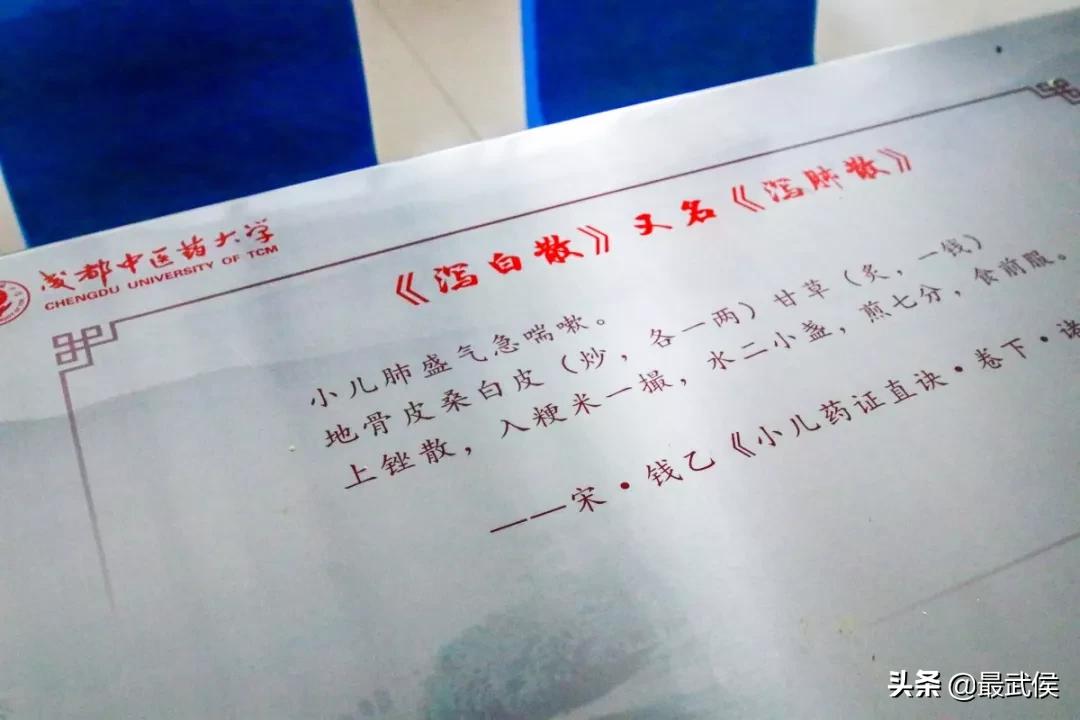 成都中医药大学
CHENGDU UNIVERSITY OF TCM
《泻白散》又名《泻肺散》
小儿肺盛气急喘嗽。
地骨皮桑白皮（炒，各一两）甘草（炙，一钱）
上锉散，入粳米一撮，水二小盏，煎七分，食前服。
——宋·钱乙《小儿药证直诀·卷下·诸
头条 @最武侯